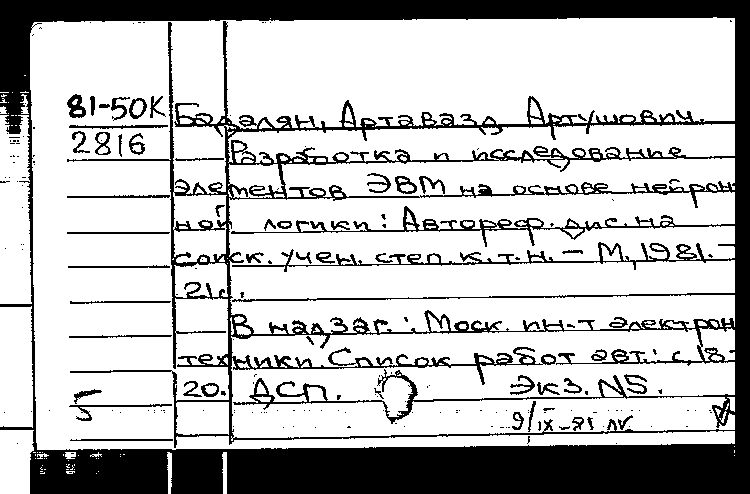 81-50К Бадалян, Артавазд Артушович.
2816 Разработка и исследование
элементов ЭВМ на основе нейрон
ной логики: Автореф. дис. на
соиск. учен. степ. к.т.н. – М., 1981. –
21с.
В надзаг.: Моск. ин-т электрон
техники. Список работ авт.: с, 18-
20. ДСП. Экз. N5.
5 9/IX-81